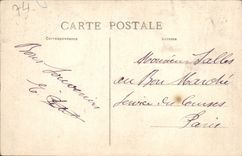 74
CARTE POSTALE
Correspondance
Bons Souvenirs
Monsieur Salles
au Bon Marché
Service des Courses
Paris